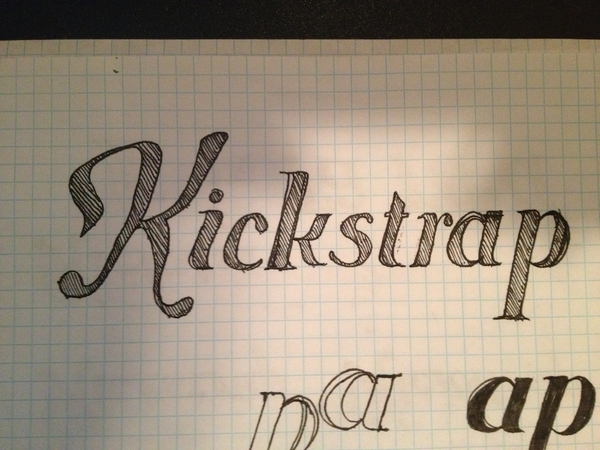 Kickstrap
pa ap